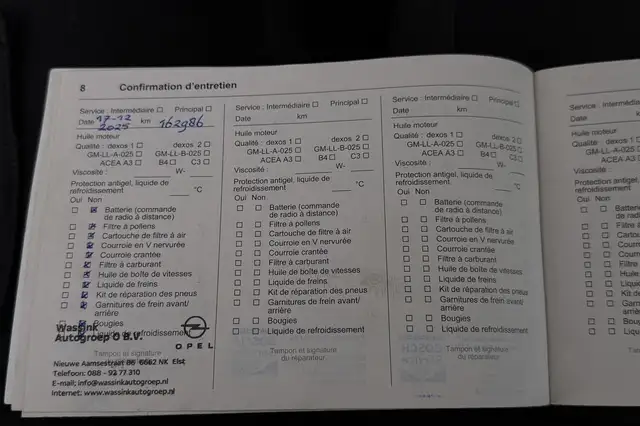 8 Confirmation d'entretien
Service : Intermédiaire Principal
Date 17-12 2025 km 162986
Huile moteur
Qualité : dexos 1 dexos 2
GM-LL-A-025 GM-LL-B-025
ACEA A3 B4 C3
Viscosité : W-
Protection antigel, liquide de
refroidissement °C
Oui Non
Batterie (commande
de radio à distance)
Filtre à pollens
Cartouche de filtre à air
Courroie en V nervurée
Courroie crantée
Filtre à carburant
Huile de boîte de vitesses
Liquide de freins
Kit de réparation des pneus
Garnitures de frein avant/
arrière
Bougies
Liquide de refroidissement
Tampon et signature
Wassink
Autogroep O B.V.
OPEL
Nieuwe Aamsestraat 86 6662 NK Elst
Telefoon: 088 - 93 77 310
E-mail: info@wassinkautogroep.nl
Internet: www.wassinkautogroep.nl
Service : Intermédiaire Principal
Date km
Huile moteur
Qualité : dexos 1 dexos 2
GM-LL-A-025 GM-LL-B-025
ACEA A3 B4 C3
Viscosité : W-
Protection antigel, liquide de
refroidissement °C
Oui Non
Batterie (commande
de radio à distance)
Filtre à pollens
Cartouche de filtre à air
Courroie en V nervurée
Courroie crantée
Filtre à carburant
Huile de boîte de vitesses
Liquide de freins
Kit de réparation des pneus
Garnitures de frein avant/
arrière
Bougies
Liquide de refroidissement
Tampon et signature
du réparateur
Service : Intermédiaire Principal
Date km
Huile moteur
Qualité : dexos 1 dexos 2
GM-LL-A-025 GM-LL-B-025
ACEA A3 B4 C3
Viscosité : W-
Protection antigel, liquide de
refroidissement °C
Oui Non
Batterie (commande
de radio à distance)
Filtre à pollens
Cartouche de filtre à air
Courroie en V nervurée
Courroie crantée
Filtre à carburant
Huile de boîte de vitesses
Liquide de freins
Kit de réparation des pneus
Garnitures de frein avant/
arrière
Bougies
Liquide de refroidissement
Tampon et signature
du réparateur
Service : Inter
Date
Huile moteur
Qualité :
GM-LL
Viscosité :
Protection
refroidissem
Oui Non
Batter
de rad
Filtre
Cartou
Courro
Courro
Filtre
Huile
Liquid
Kit de
Garni
arrièr
Boug
Liqui